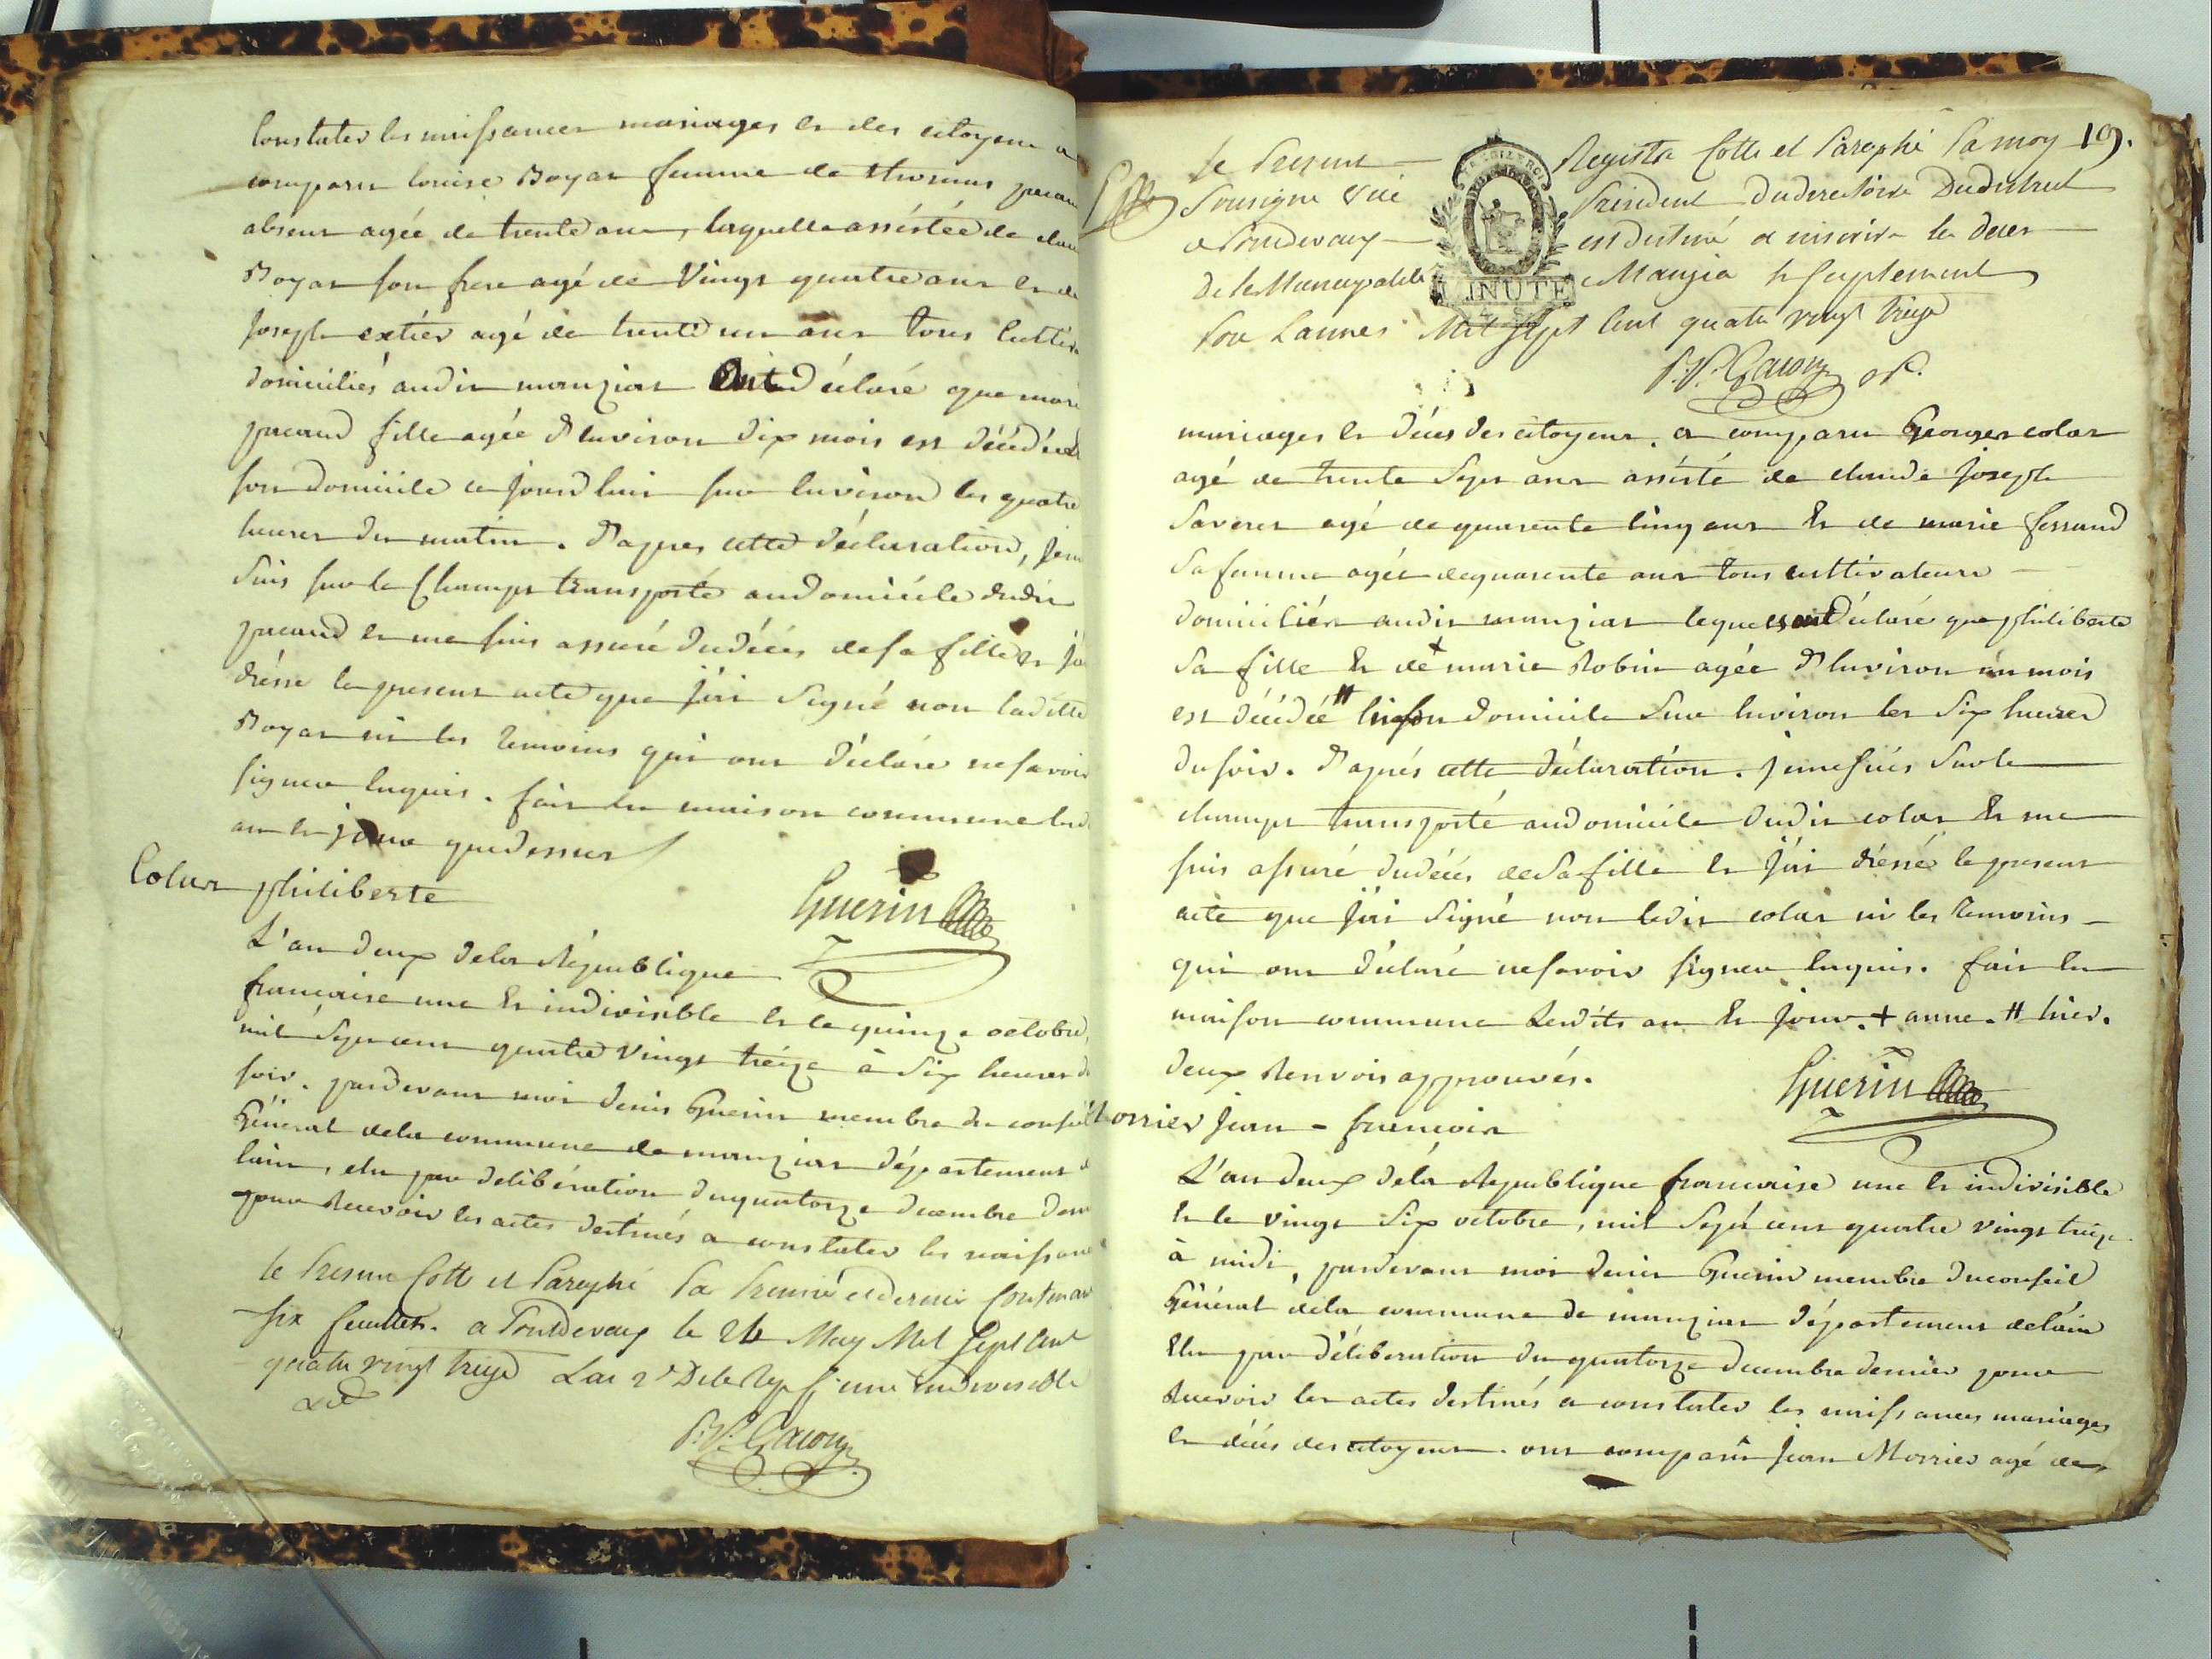 Constater les naissances mariages et des citoyens a
comparu Louise Boyat femme de thomas
absent agée de trente ans, laquelle assistée de
Boyat son frere agé de Vingt quatre ans et de
joseph extier agé de trente un ans tous
domiciliés audit manziat Ont déclaré que
pacaud fille agée d'Environ dix mois est décédée
son domicile ce jourd'hui sur Environ les quatre
heures du matin. D'apres cette déclaration, je
suis sur le Champs transporté au domicile dudit
pacaud et me suis assuré du décès de sa fille et j'ai
dressé le present acte que j'ai Signé non ladite
Boyat ni les temoins qui ont déclaré ne savoir
signer Enquis. fait En maison commune
an et jour que dessus
Colas philiberte
Guerin
L'an deux de la République
francaise une Et indivisible et le quinze octobre
mil Sept cent quatre Vingt treize à Six heures
soir. pardevant moi denis Guerin membre du conseil
Général de la commune de manziat département
lain, elu par deliberation du quatorze decembre
pour Recevoir les actes destinés a constater les naissances
le Present Cotte et Paraphé Par Premié et dernié
six feuillets. a Pontdevaux le May Mil Sept Cent
quatre vingt treize Lan 2e De la Rep une indivisible
P. P. Gacon
le Present Registre Cotte et Paraphé Par moy 19.
Sousigné President du directoire Du district
a Pontdevaux est destiné a inscrire les deces
De la Municipalité Manzia et Suplement
Pour Lannee Mil Sept Cent quatre vingt treize
MINUTE
P. P. Gacon
mariages et décès des citoyens. a comparu Georges colas
agé de trente Sept ans assisté de claude joseph
agé de quarente Cinq ans Et de marie ferrand
Sa femme agée de quarente ans tous cultivateurs
domiciliés audit manziat lequels ont déclaré que philiberte
Sa fille Et de + marie Robin agée d'Environ un mois
est décédée # En son domicile Sur Environ les Six heures
du soir. D'aprés cette déclaration. je me suis Sur le
champs transporté au domicile dudit colas Et me
suis assuré du décés de Sa fille et j'ai dréssé le present
acte que j'ai Signé non ledit colas ni les temoins
qui ont déclaré ne savoir signer Enquis. fait En
maison commune Lesdits an Et jour. + anne. # hier.
deux Renvois approuvés.
Guerin
Morrier jean - francois
L'an deux de la République francaise une et indivisible
Et le vingt Six octobre, mil Sept cent quatre vingt treize
à midi, pardevant moi denis Guerin membre du conseil
Général de la commune de manziat département de lain
Elu par déliberation du quatorze decembre dernier pour
Recevoir les actes destinés a constater les naissances mariages
et décès des citoyens. ont comparu jean Morrier agé de